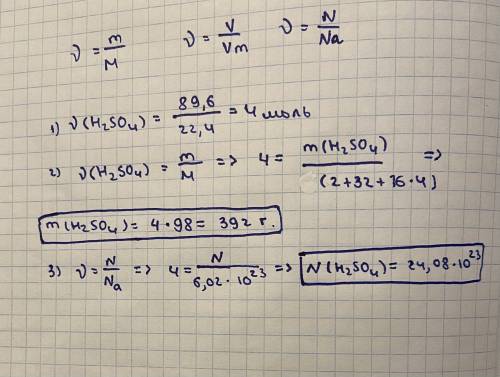 ν = m/M ν = V/Vm ν = N/Na
1) ν(H₂SO₄) = 89,6/22,4 = 4 моль
2) ν(H₂SO₄) = m/M => 4 = m(H₂SO₄)/(2+32+16·4) =>
m(H₂SO₄) = 4·98 = 392 г.
3) ν = N/Na => 4 = N/6,02·10²³ => N(H₂SO₄) = 24,08·10²³